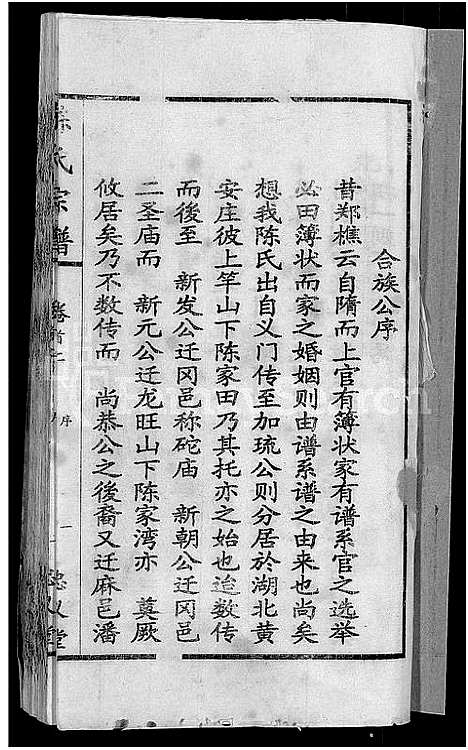 合族公序
昔郑樵云自隋而上官有簿状家有谱系官之选举
必田簿状而家之婚姻则由谱系谱之由来也尚矣
想我陈氏出自义门传至加琉公则分居於湖北黄
安庄彼上竿山下陈家田乃其托亦之始也迨数传
而後至 新发公迁冈邑称砣庙 新朝公迁冈邑
二圣庙而 新元公迁龙旺山下陈家湾亦 奠厥
攸居矣乃不数传而 尚恭公之後裔又迁麻邑潘
氏宗譜
卷首 序
堂